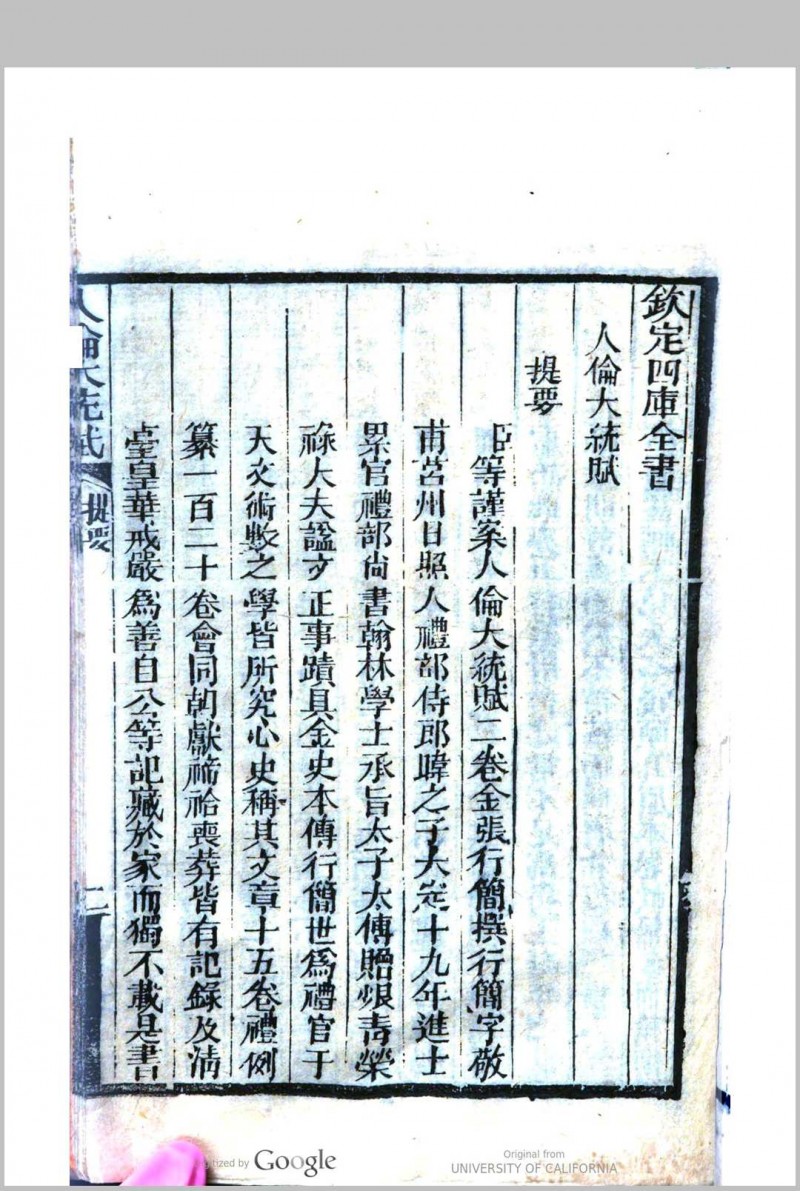 欽定四庫全書
人倫大統賦
提要
臣等謹案人倫大統賦二卷金張行簡撰行簡字敬
甫莒州日照人禮部侍郎暐之子大定十九年進士
累官禮部尚書翰林學士承旨太子太傅贈銀青榮
祿大夫謚文正事蹟具金史本傳行簡世爲禮官于
天文術數之學皆所究心史稱其文章十五卷禮例
纂一百二十卷會同朝獻禘祫喪葬皆有記錄及清
臺皇華戒嚴爲善自公等記藏於家而獨不載是書
人倫大統賦
提要
Digitized by Google
Original from
UNIVERSITY OF CALIFORNIA